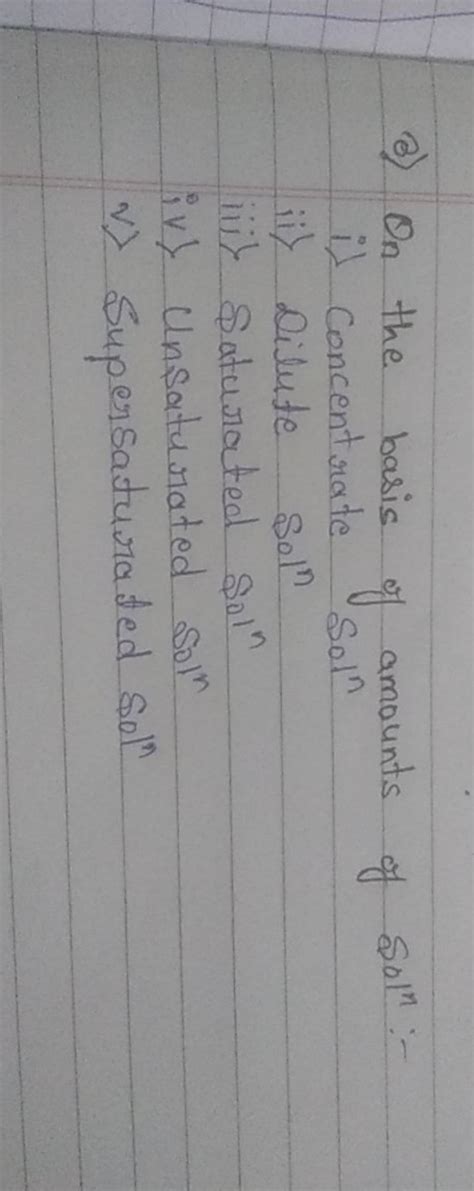 a) On the basis of amounts of Solⁿ :-
i) Concentrate Solⁿ
ii) Dilute Solⁿ
iii) Saturated Solⁿ
iv) Unsaturated Solⁿ
v) Supersaturated Solⁿ